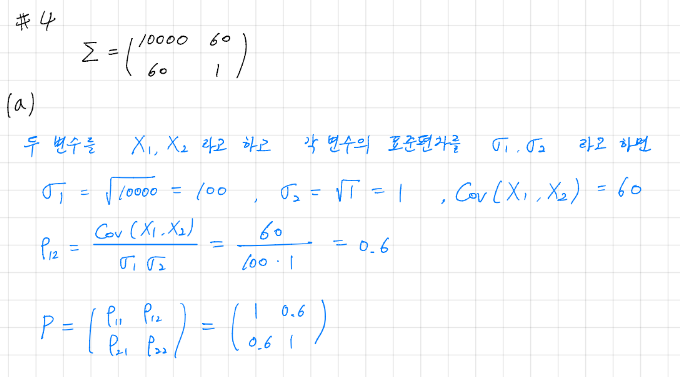 #4
Σ = ( 10000 60
60 1 )
(a)
두 변수를 X₁, X₂ 라고 하고 각 변수의 표준편차를 σ₁, σ₂ 라고 하면
σ₁ = √10000 = 100 , σ₂ = √1 = 1 , Cov(X₁, X₂) = 60
ρ₁₂ = Cov(X₁, X₂) / σ₁ σ₂ = 60 / 100 · 1 = 0.6
P = ( ρ₁₁ ρ₁₂
ρ₂₁ ρ₂₂ ) = ( 1 0.6
0.6 1 )